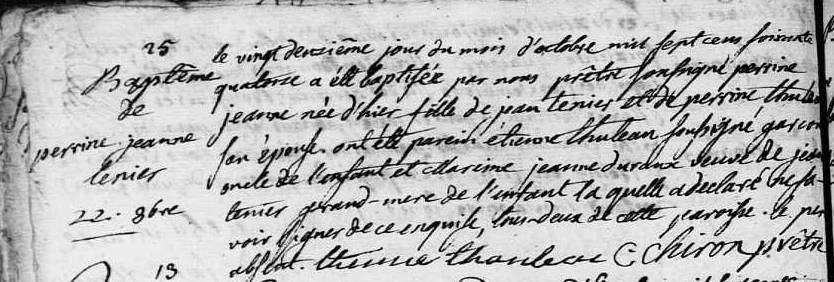 25
Baptême
de
perrine jeanne
tenier
22. 8bre
le vingt deuxième jour du mois d'octobre mil sept cens soixante
quatorze a été baptisée par nous prêtre soussigné perrine
jeanne née d'hier fille de jean tenier et de perrine thuleau
son épouse. ont été parein etienne thuleau soussigné garcon
oncle de l'enfant et Mareine jeanne duraux veuve de jean
tenier grand-mere de l'enfant la quelle a declaré ne sa-
voir signer de ce enquise, tous deux de cette paroisse. le pere
absent. Etienne thauleau C Chiron prêtre
13